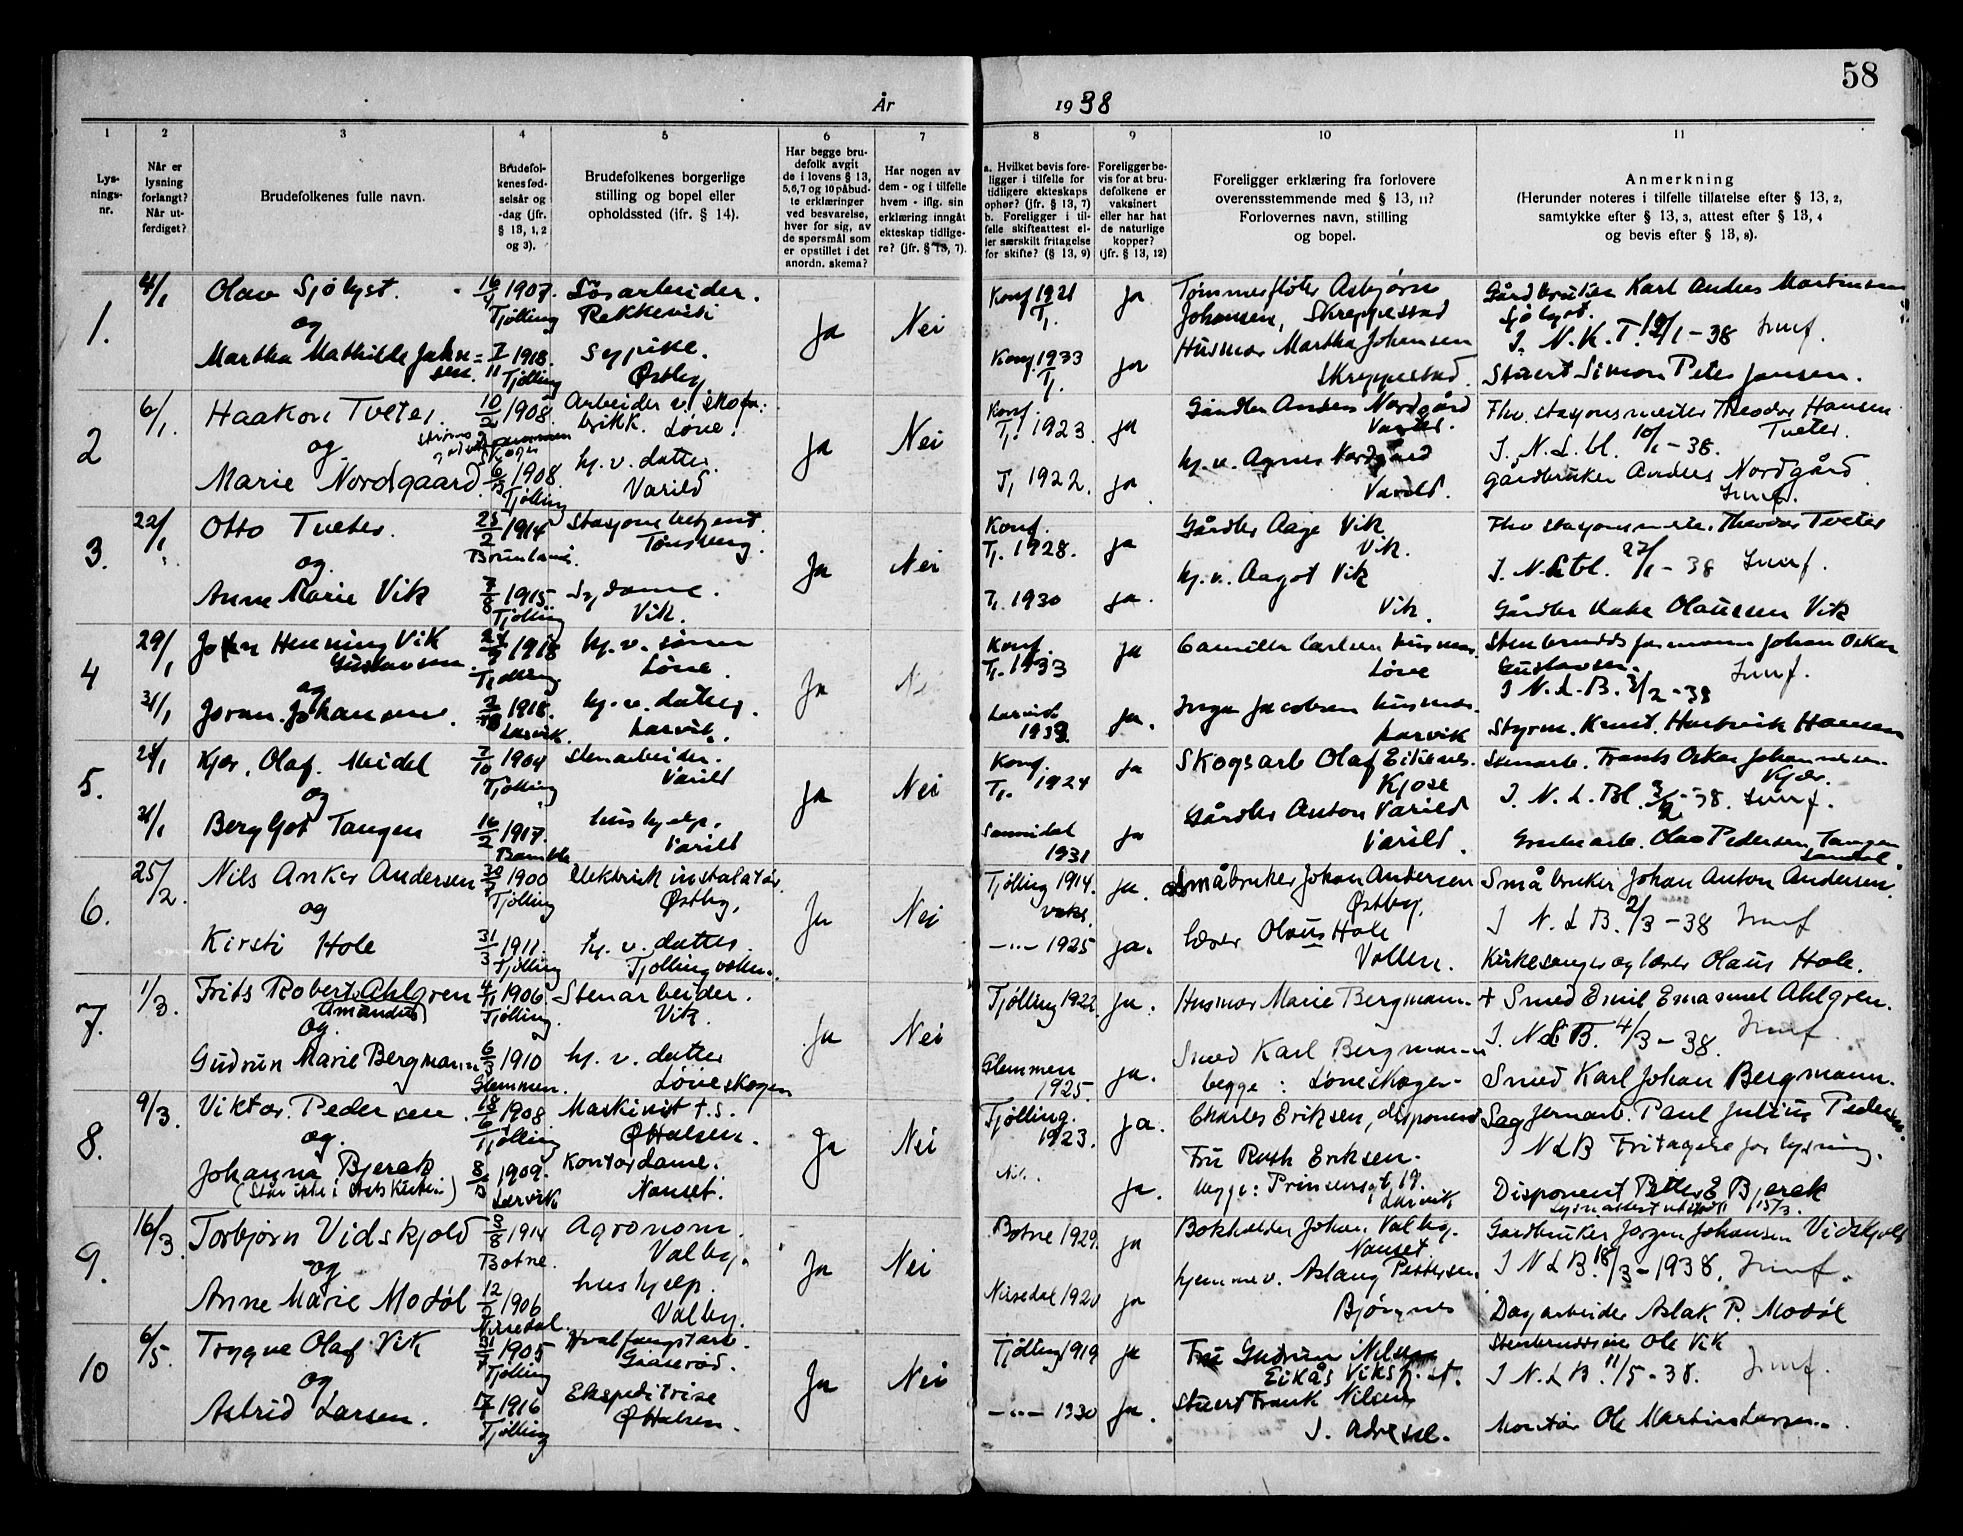 58
År 1938
1 2 3 4 5 6 7 8 9 10 11
Lys-
nings-
nr.
Når er
lysning
forlangt?
Når ut-
ferdiget?
Brudefolkenes fulle navn.
Brudefol-
kenes fød-
selsår og
-dag (jfr.
§ 13, 1, 2
og 3).
Brudefolkenes borgerlige
stilling og bopel eller
opholdssted (ifr. § 14).
Har begge bru-
defolk avgit
de i lovens § 13,
5,6,7 og 10 påbud-
te erklæringer
ved besvarelse,
hver for sig, av
de spørsmål som
er opstillet i det
anordn. skema?
Har nogen av
dem - og i tilfelle
hvem - iflg. sin
erklæring inngåt
ekteskap tidlige-
re? (jfr. § 13, 7).
a. Hvilket bevis fore-
ligger i tilfelle for
tidligere ekteskaps
ophør? (jfr. § 13, 7)
b. Foreligger i til-
felle skifteattest el-
ler særskilt fritagelse
for skifte? (§ 13, 9)
Foreligger be-
vis for at bru-
defolkene er
vaksinert
eller har hat
de naturlige
kopper?
(jfr. § 13, 12)
Foreligger erklæring fra forlovere
overensstemmende med § 13, 11?
Forlovernes navn, stilling
og bopel.
Anmerkning
(Herunder noteres i tilfelle tillatelse efter § 13, 2,
samtykke efter § 13, 3, attest efter § 13, 4
og bevis efter § 13, 8).
1. 4/1 Olav Sjölyst. 16/4 1907. Løsarbeider.
og Tjølling Rekkevik
Martha Mathilde Johan= 7/11 1918. Sypike.
sen. Tjølling Østby
Ja Nei
Konf 1921 Ja Tømmerfløter Asbjørn
T. Johansen, Skreppestad
Konf. 1933 Ja Husmor Martha Johansen
T. Skreppestad.
Gårdbruker Karl Anders Martinsen
Sjölyst.
I. N. K. T. 19/1 - 38
Stuert Simon Peter Jansen.
2 6/1. Haakon Tveter. 10/2 1908 Arbeider v/ skofa-
og brikk. Løve.
Marie Nordgaard. 1908. hj. v. datter.
Tjølling Varild
Ja Nei
Konf.
T. 1923. ja Gårdbr Anders Nordgård
Varild.
T. 1922. ja hj. v. Agnes Nordgård
Varild.
Fhv. stasjonsmester Theodor Hansen
Tveter.
I. N. L. bl. 10/1 - 38.
gårdbruker Anders Nordgård
3. 22/1 Otto Tveter. 25/2 1914 Stasjonsbetjent.
og. Brunlanes. Tønsberg.
Anne Marie Vik 7/8 1915. Sydame.
Tjølling Vik.
Ja Nei
Konf.
T. 1928. ja Gårdbr Aage Vik
Vik.
T. 1930 ja. hj. v. Aagot Vik
Vik.
Fhv stasjonsmester. Theodor Tveter
I. N. L bl. 27/1 - 38
Gårdbr Olaussen Vik
4 29/1 John Henning Vik 1918 hj. v. sønn
Gustavsen. Tjølling Løve.
og
31/1 Joran Johansen. 1918. hj. v. datter.
Larvik. Larvik.
Ja
Konf.
T. 1933 ja Camilla Carlsen husmor.
Løve
Larvik
ja. Inga Jacobsen husmor.
Larvik
Stenbruddsformann Johan Oskar
Gustavsen.
I N. L. B. 3/2 - 38
Styrm. Knut. Hansen
5. 28/1 Kjær, Olaf. Meidel 7/10 1904 Stenarbeider.
og Tjølling Varild
31/1 Bergljot Tangen 16/2 1917. hushjelp.
Bamble Varild
Ja Nei
Konf.
T. 1924 ja Skogsarb Olaf
Kjose
Sannidal
1931 ja Gårdbr Anton Varild
Varild.
Stenarb. Frants Oskar Johannessen
Kjær.
I. N. L. Bl. 3/2 - 38.
Grubearb. Olav Pedersen Tangen
6. 25/2. Nils Anker Andersen 1900 Elektrisk instalatør.
og Tjølling Østby.
Kirsti Hole 31/3 1911. hj. v. datter.
Tjølling Tjøllingvollen.
Ja Nei
Tjølling 1914. ja. Småbruker Johan Andersen
Østby.
—"— 1925 ja. Lærer Olaus Hole
Vollen.
Småbruker Johan Anton Andersen.
I N. L B. 2/3 - 38
Kirkesanger og lærer Olaus Hole.
7. 1/3. Frits Robert Ahlgren 1906. Stenarbeider.
(Amandus) Tjølling. Vik.
Og.
Gudrun Marie Bergmann 6/3 1910 hj. v. datter
Glemmen. Løveskogen
Ja Nei
Tjølling 1922. ja. Husmor Marie Bergmann.
Glemmen
1925. ja. Smed Karl Bergmann
begge: Løveskogen.
+ Smed Emil Emanuel Ahlgren.
I. N L B. 4/3 - 38.
Smed Karl Johan Bergmann.
8. 9/3. Viktor. Pedersen. 18/6 1908 Maskinist t.s.
og. Tjølling Ø Halsen.
Johanna Bjerek 1909. Kontordame.
(Står ikke i statskirken) Larvik Nanset.
Ja Nei
Tjølling.
1923. ja. Charles Eriksen, disponent
ja. Fru Ruth Eriksen.
begge: Prinsensgt. 19.
Larvik
Paul Julius Pedersen
I N L B Fritagere for lysning.
Disponent Bjerek
15/3.
9. 16/3. Torbjørn Vidskjold 8/8 1914 Agronom.
og Botne. Valby.
Anne Marie Modøl 1906 hushjelp.
Nissedal. Valby.
Ja Nei
Botne 1929. ja Bokholder Johan Valby.
Nanset.
Nissedal 1920 ja hjemmev. Aslaug Pettersen.
Bjørgnes
Gårdbruker Jørgen Johansen Vidskjold
I N L B. 18/3 - 1938.
Dagarbeider Aslak P. Modøl
10 6/5. Trygve Olaf Vik 1905 Hvalfangstarb.
og Tjølling Gåserød.
Astrid Larsen. 1916 Ekspeditrise
Tjølling Ø Halsen.
Ja Nei
Tjølling 1919 ja Fru Gudrun Nilsen
—"— 1930 ja. Stuert Frank Nilsen
S. adresse.
Ole Vik
I N. L B. 11/5 - 38.
Montør Ole Martin Larsen.